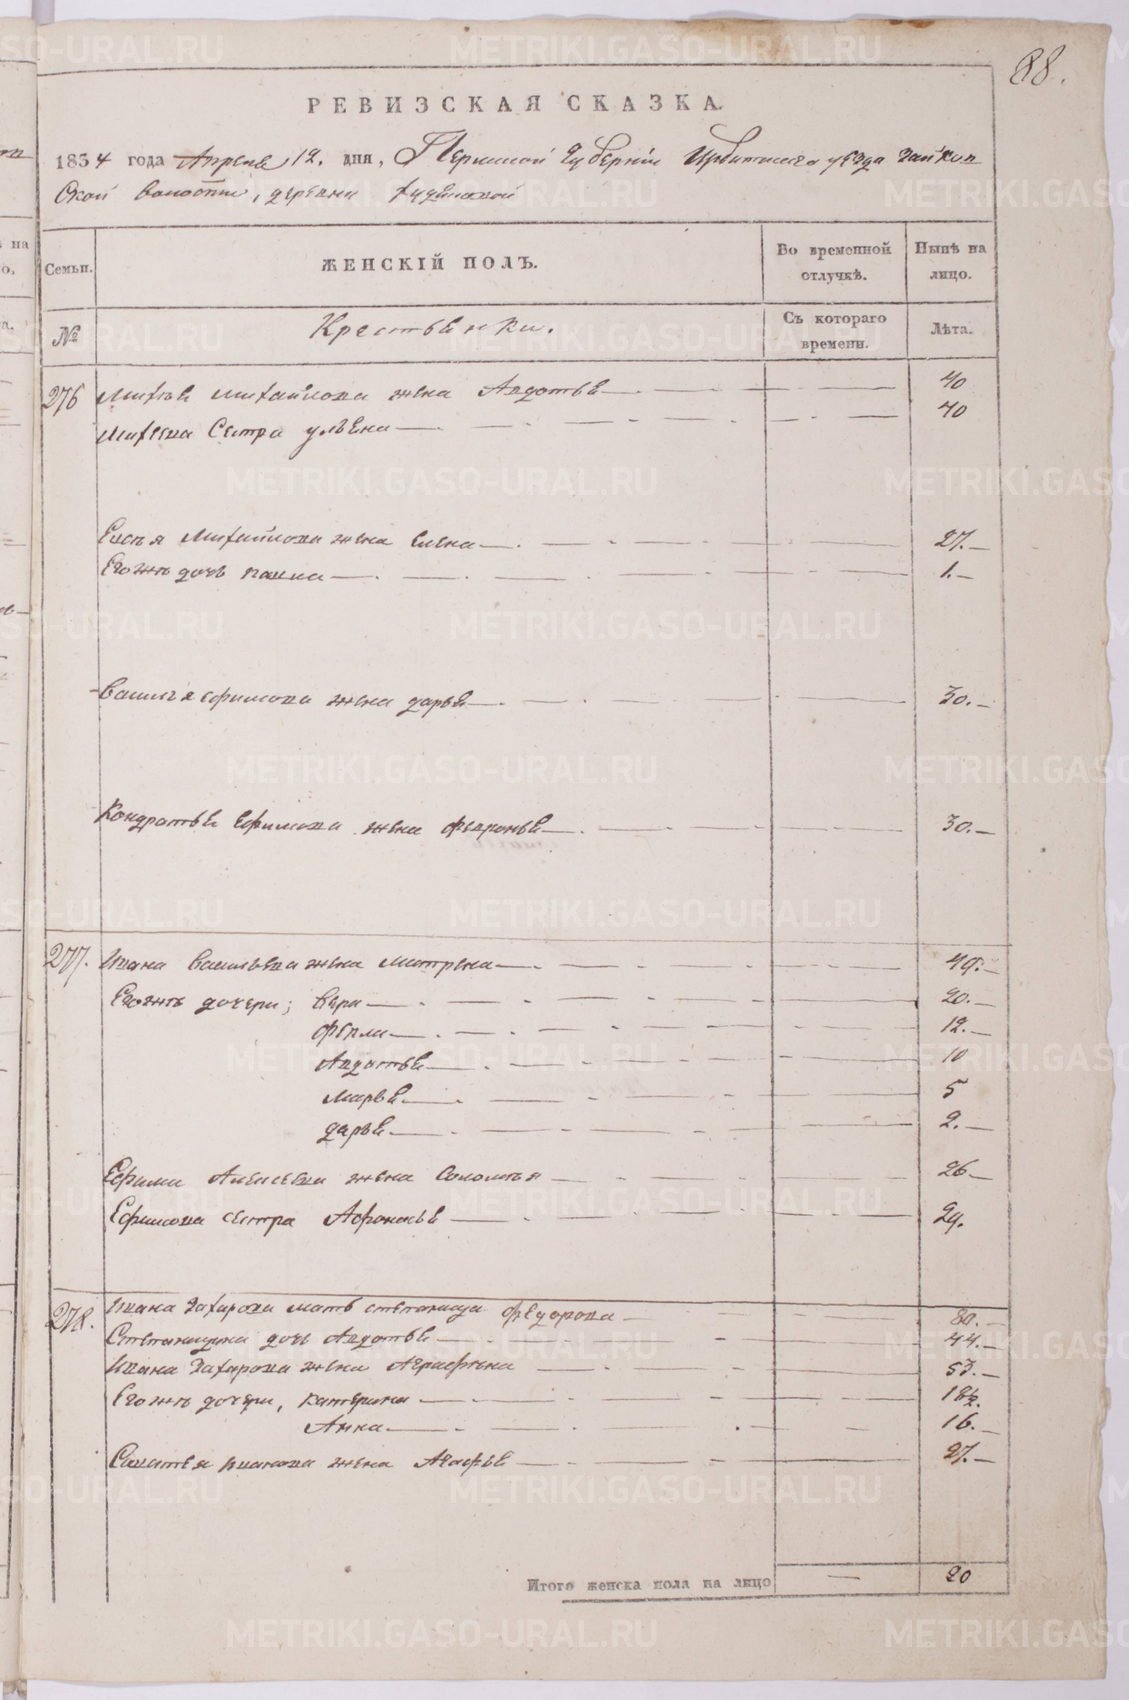 88.
РЕВИЗСКАЯ СКАЗКА.
1834 года Апреля 12. дня, Пермской Губернiи Ирбитскаго уѣзда Зайков
ской волости, деревни
Семьи. ЖЕНСКIЙ ПОЛЪ. Во временной отлучкѣ. Нынѣ на лицо.
№ Крестьянки. Съ котораго времени. Лѣта.
276 Михѣя Михайлова жена Авдотья 40
Михеева Сестра ульяна 40
Михайлова жена елена 27.
Егожъ дочь 1.
Василья ефимова жена дарья 30.
Кондратья Ефимова жена февронья 30.
277. Ивана Васильева жена матрена 49.
Егожъ дочери; вера 20.
фекла 12.
Авдотья 10
марья 5
дарья 2.
Ефима Алексеева жена Соломея 26
Ефимова сестра Афонасья 29.
278. Ивана Захарова мать степанида федорова 80.
Степанидина дочь Авдотья 44.
Ивана Захарова жена Аграфена 53.
Егожъ дочери, катерина 18½.
Анна 16.
Савателя иванова жена Агафья 27.
Итого женска пола на лицо — 20
METRIKI.GASO-URAL.RU